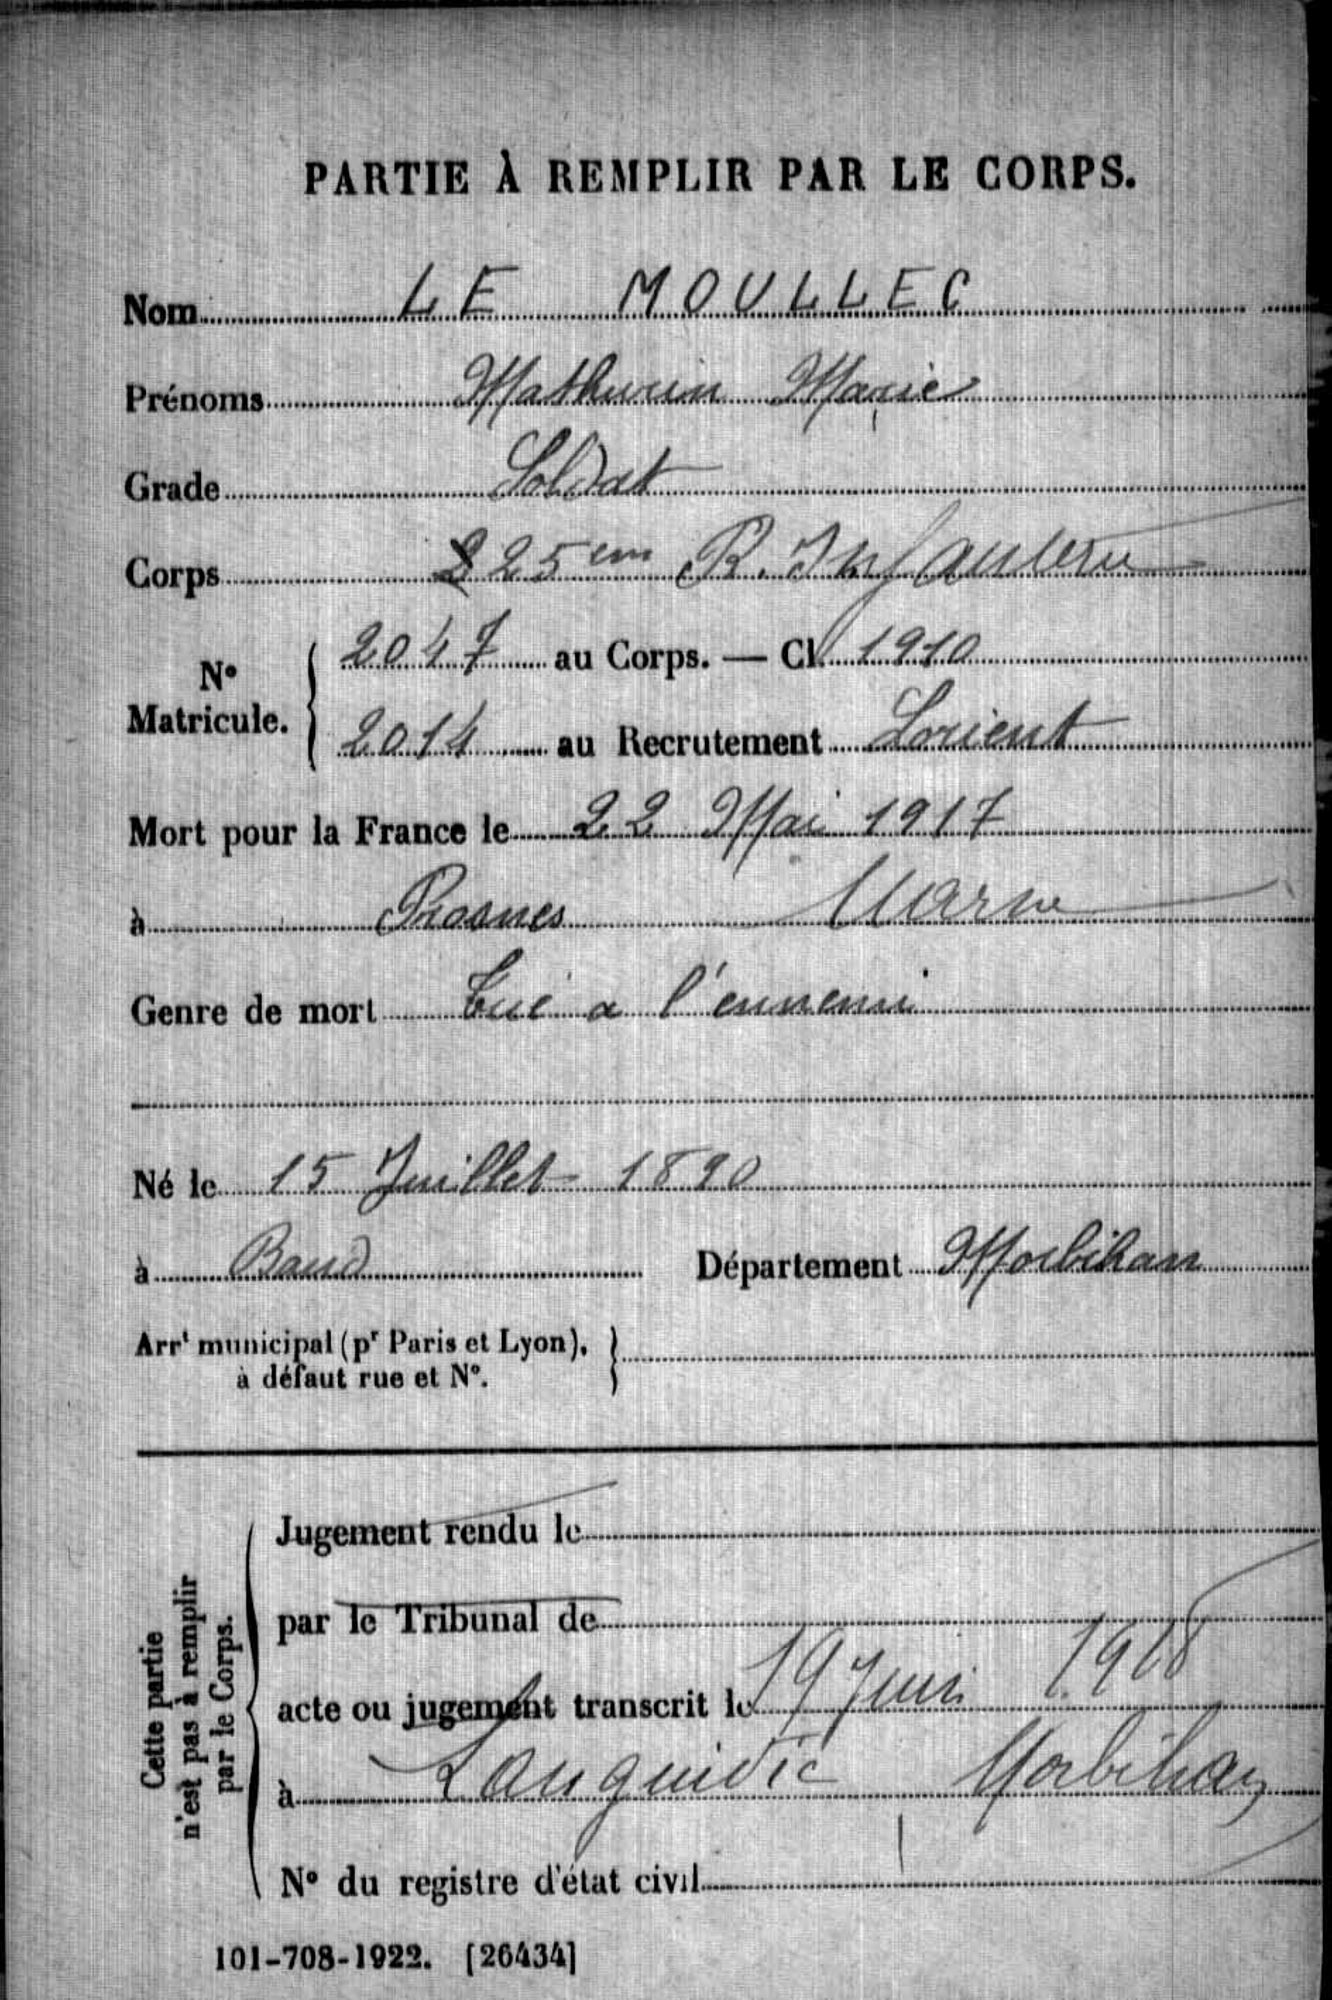 PARTIE À REMPLIR PAR LE CORPS.
Nom LE MOULLEC
Prénoms Mathurin Marie
Grade Soldat
Corps 225em R. Infanterie
N° Matricule. 2047 au Corps. — Cl. 1910
2014 au Recrutement Lorient
Mort pour la France le 22 Mai 1917
à Prosnes Marne
Genre de mort tué a l'ennemi
Né le 15 Juillet 1890
à Baud Département Morbihan
Arrt municipal (pr Paris et Lyon),
à défaut rue et N°.
Cette partie
n'est pas à remplir
par le Corps.
Jugement rendu le
par le Tribunal de
acte ou jugement transcrit le 19 Juin 1918
à Languidic Morbihan
N° du registre d'état civil
101-708-1922. [26434]